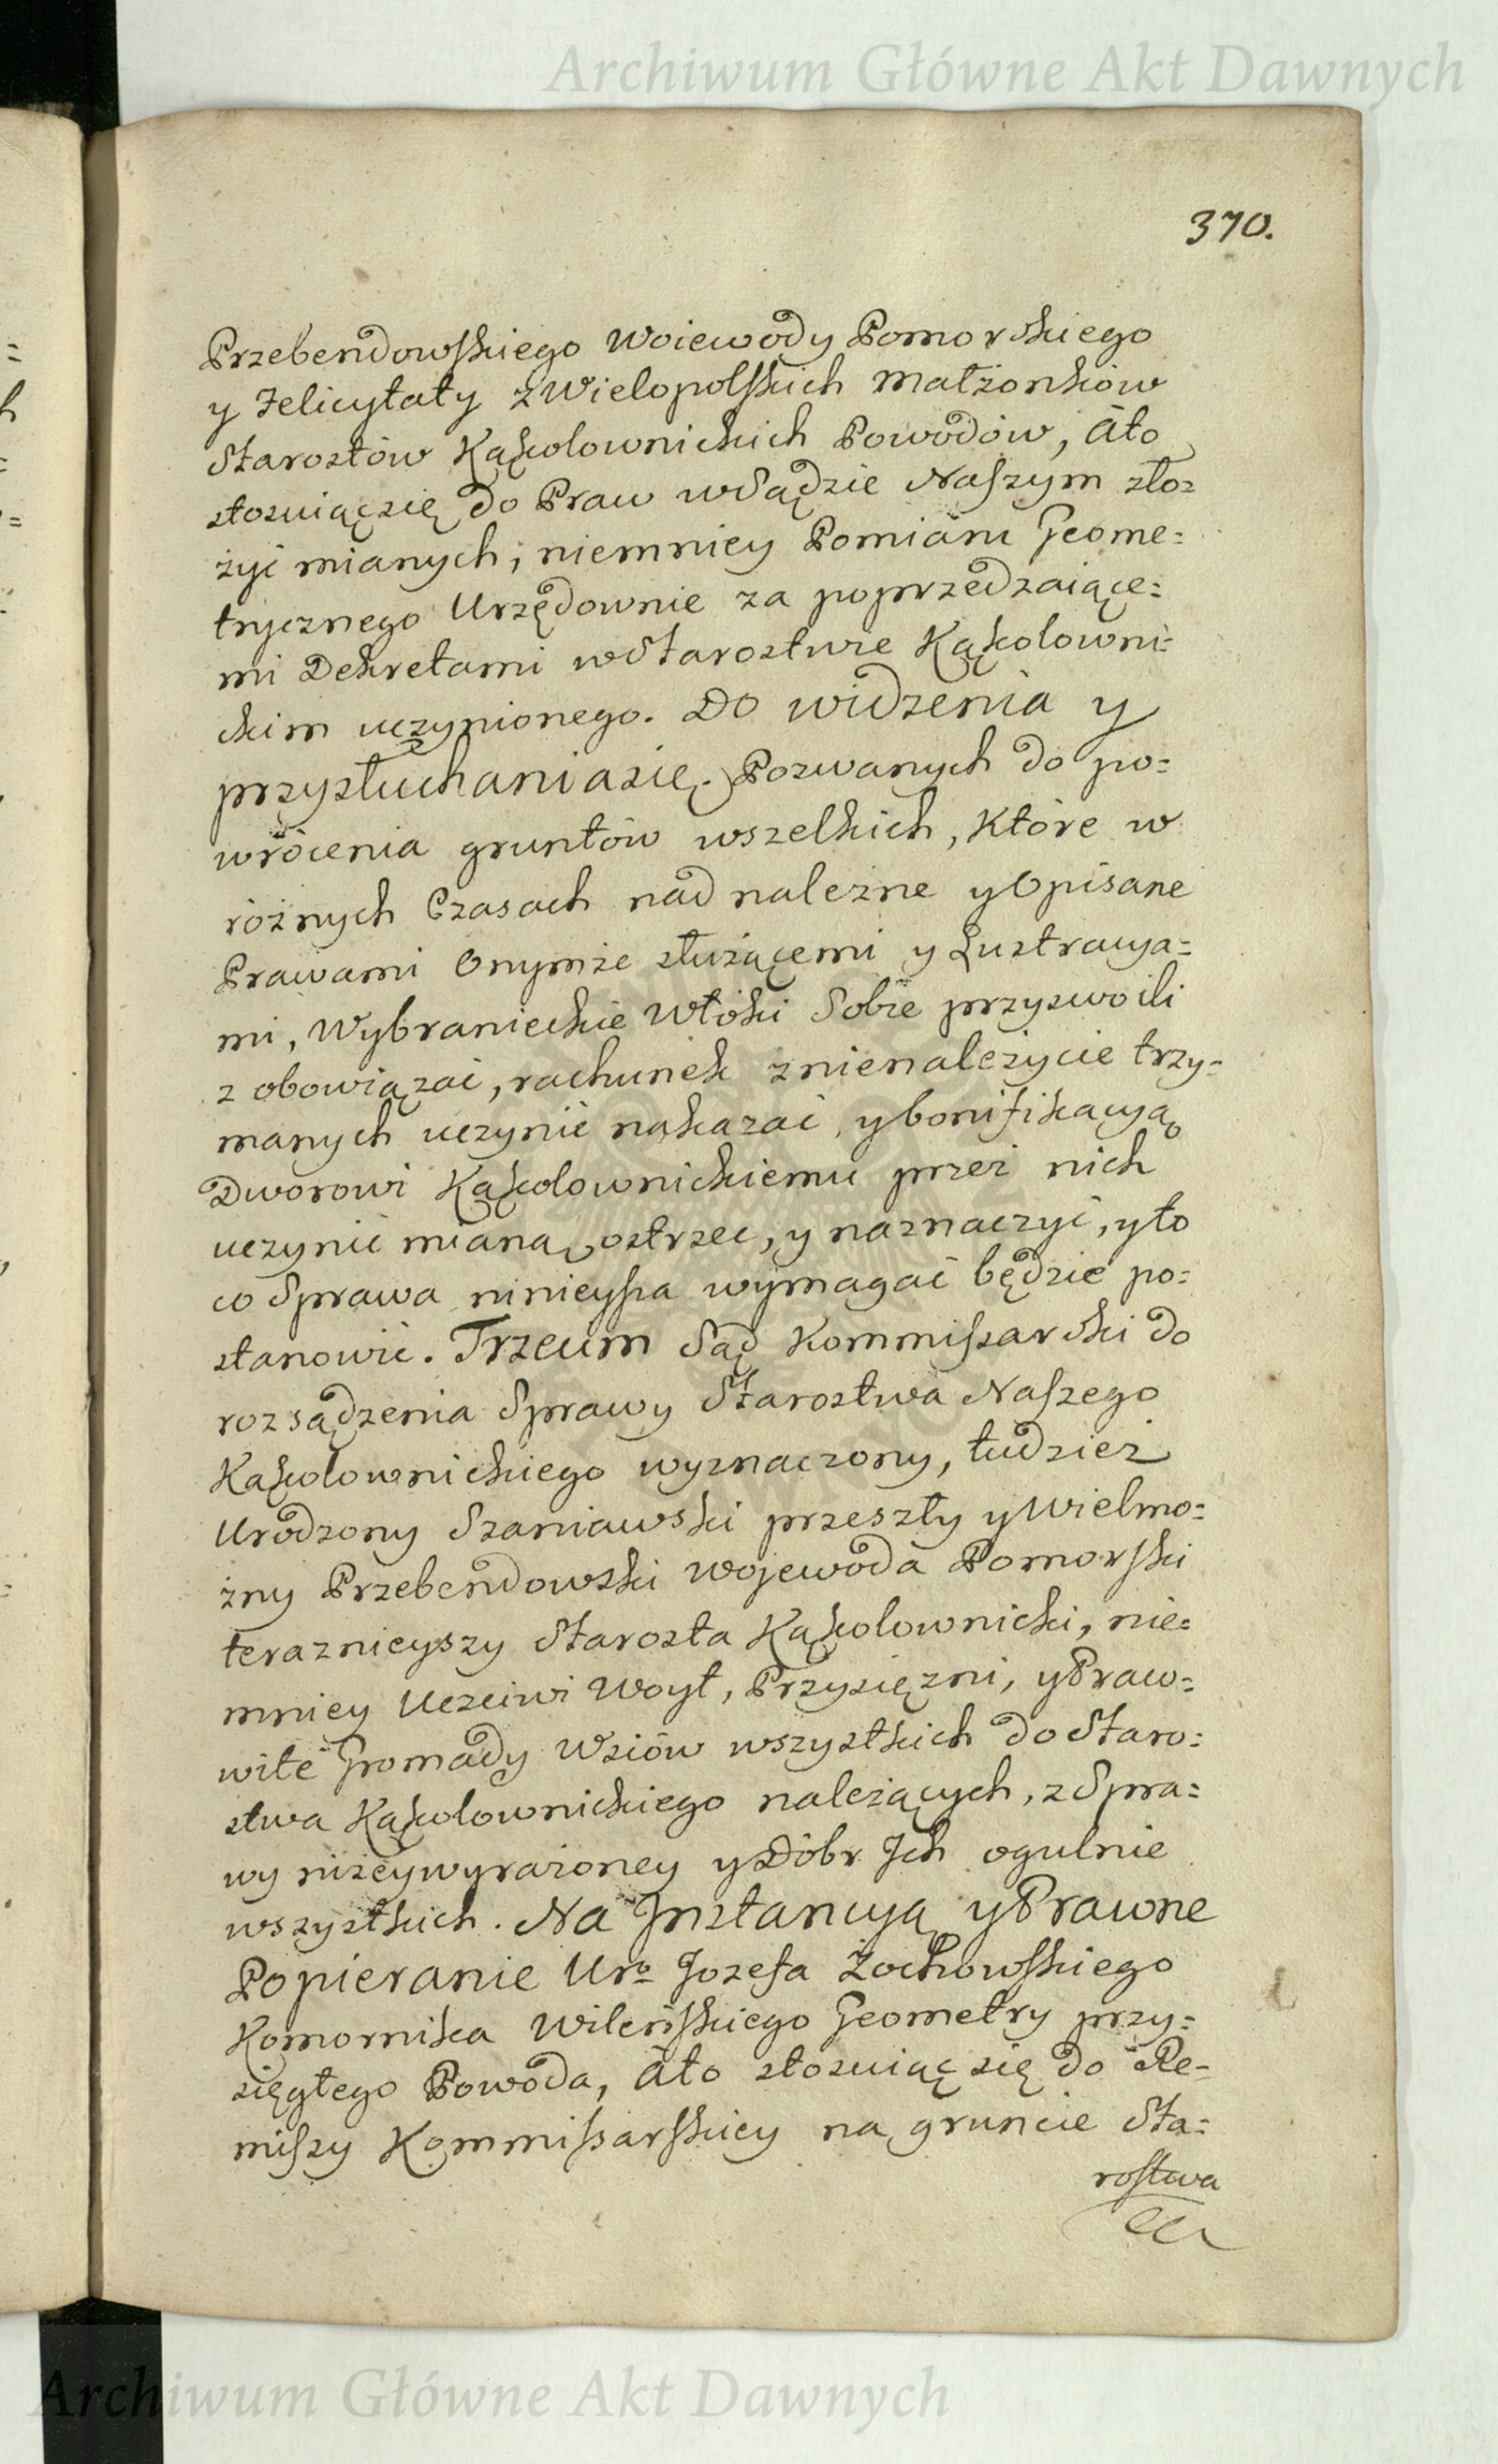 Archiwum Główne Akt Dawnych
370.
Przebendowskiego Woiewody Pomorskiego
y Felicytaty z Wielopolskich Małżonków
Starostów Kąkolownickich Powodów, Ato
stosuiąc się do Praw w Sądzie Naszym zło=
żyć mianych, niemniey Pomiaru Geome=
trycznego Urzędownie za poprzedzaiące=
mi Dekretami w Starostwie Kąkolowni=
ckim uczynionego. Do widzenia y
przysłuchania się. Pozwanych do po=
wrócenia gruntów wszelkich, które w
różnych Czasach nad należne y Opisane
Prawami Onymże służącemi y Lustracya=
mi, Wybranieckie Włóki Sobie przyswoili
z obowiązać, rachunek z nienależycie trzy=
manych uczynić nakazać, y bonifikacyą
Dworowi Kąkolownickiemu przez nich
uczynić mianą, ostrzec, y naznaczyć, y to
co Sprawa ninieysza wymagać będzie po=
stanowić. Trzecim Sąd Kommissarski do
rozsądzenia Sprawy Starostwa Naszego
Kąkolownickiego wyznaczony, tudzież
Urodzony Szaniawski przeszły y Wielmo=
żny Przebendowski Wojewoda Pomorski
teraznieyszy Starosta Kąkolownicki, nie=
mniey Uczciwi Woyt, Przysiężni, y Praw=
wite Gromady Wsiów wszystkich do Staro=
stwa Kąkolownickiego należących, z Spra=
wy niżeywyrażoney y Dóbr Ich ogulnie
wszystkich. Na Instancyą y Prawne
Popieranie Uro Jozefa Żochowskiego
Komornika Wileńskiego Geometry przy=
sięgłego Powoda, Ato stosuiąc się do Re=
missy Kommissarskiey na gruncie Sta=
rostwa
Archiwum Główne Akt Dawnych